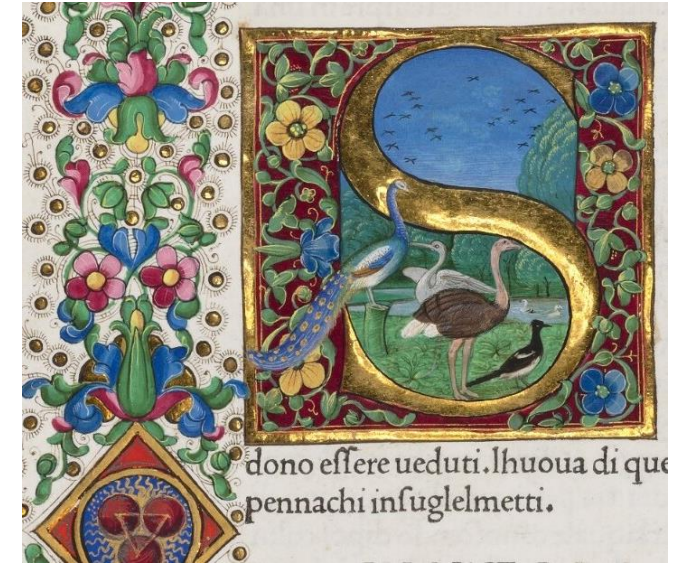 S
dono eſſere ueduti.lhuoua di que
pennachi inſuglelmetti.